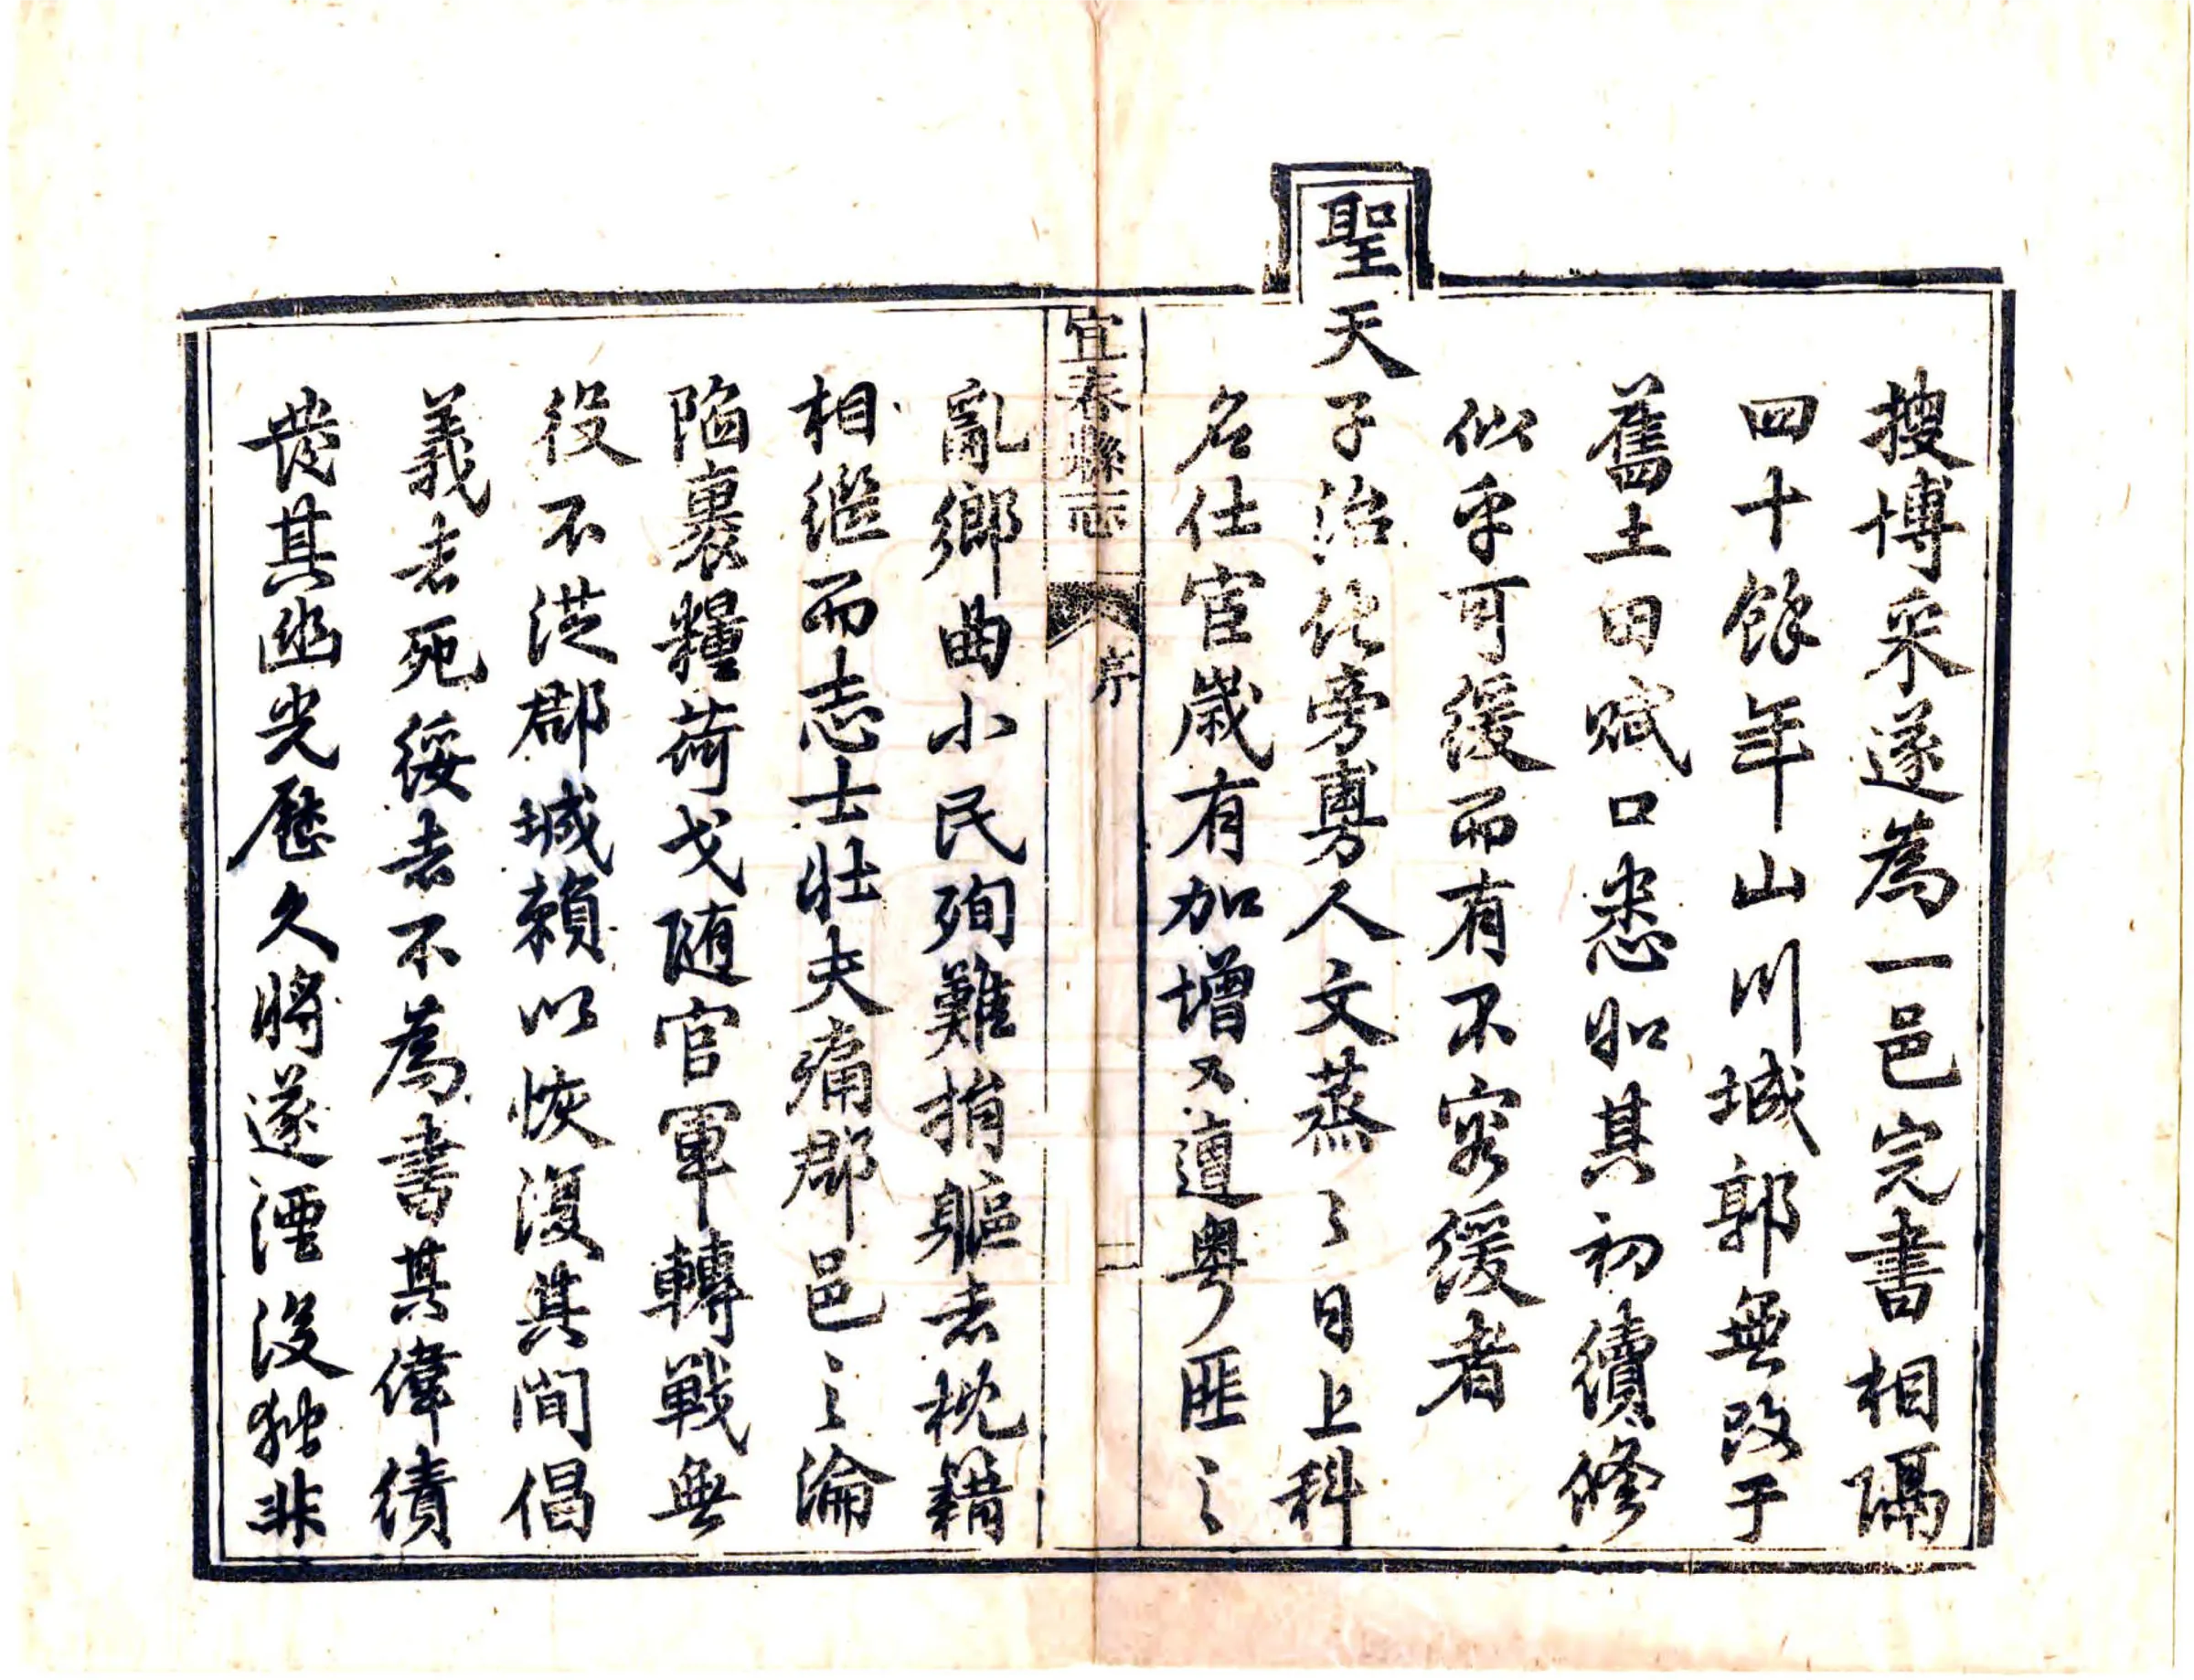 搜博采遂為一邑完書相隔
四十餘年山川城郭無改于
舊土田賦口悉如其初續修
似乎可緩而有不容緩者
聖天子治化旁敷人文蒸〻日上科
名仕宦歲有加增又遭粵匪之
宜春縣志 序 二
亂鄉曲小民殉難捐軀者枕籍
相繼而志士壯夫痛郡邑之淪
陷裹糧荷戈随官軍轉戰無
役不從郡城賴以恢復其间倡
義者死綏者不為書其偉績
發其幽光歷久將遂湮沒独非